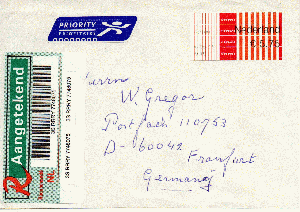 PRIORITY
PRIORITAIRE
Nederland
Aangetekend
R
Herrn
W. Gregor
Postfach 110753
D-60042
Franfurt
Germany